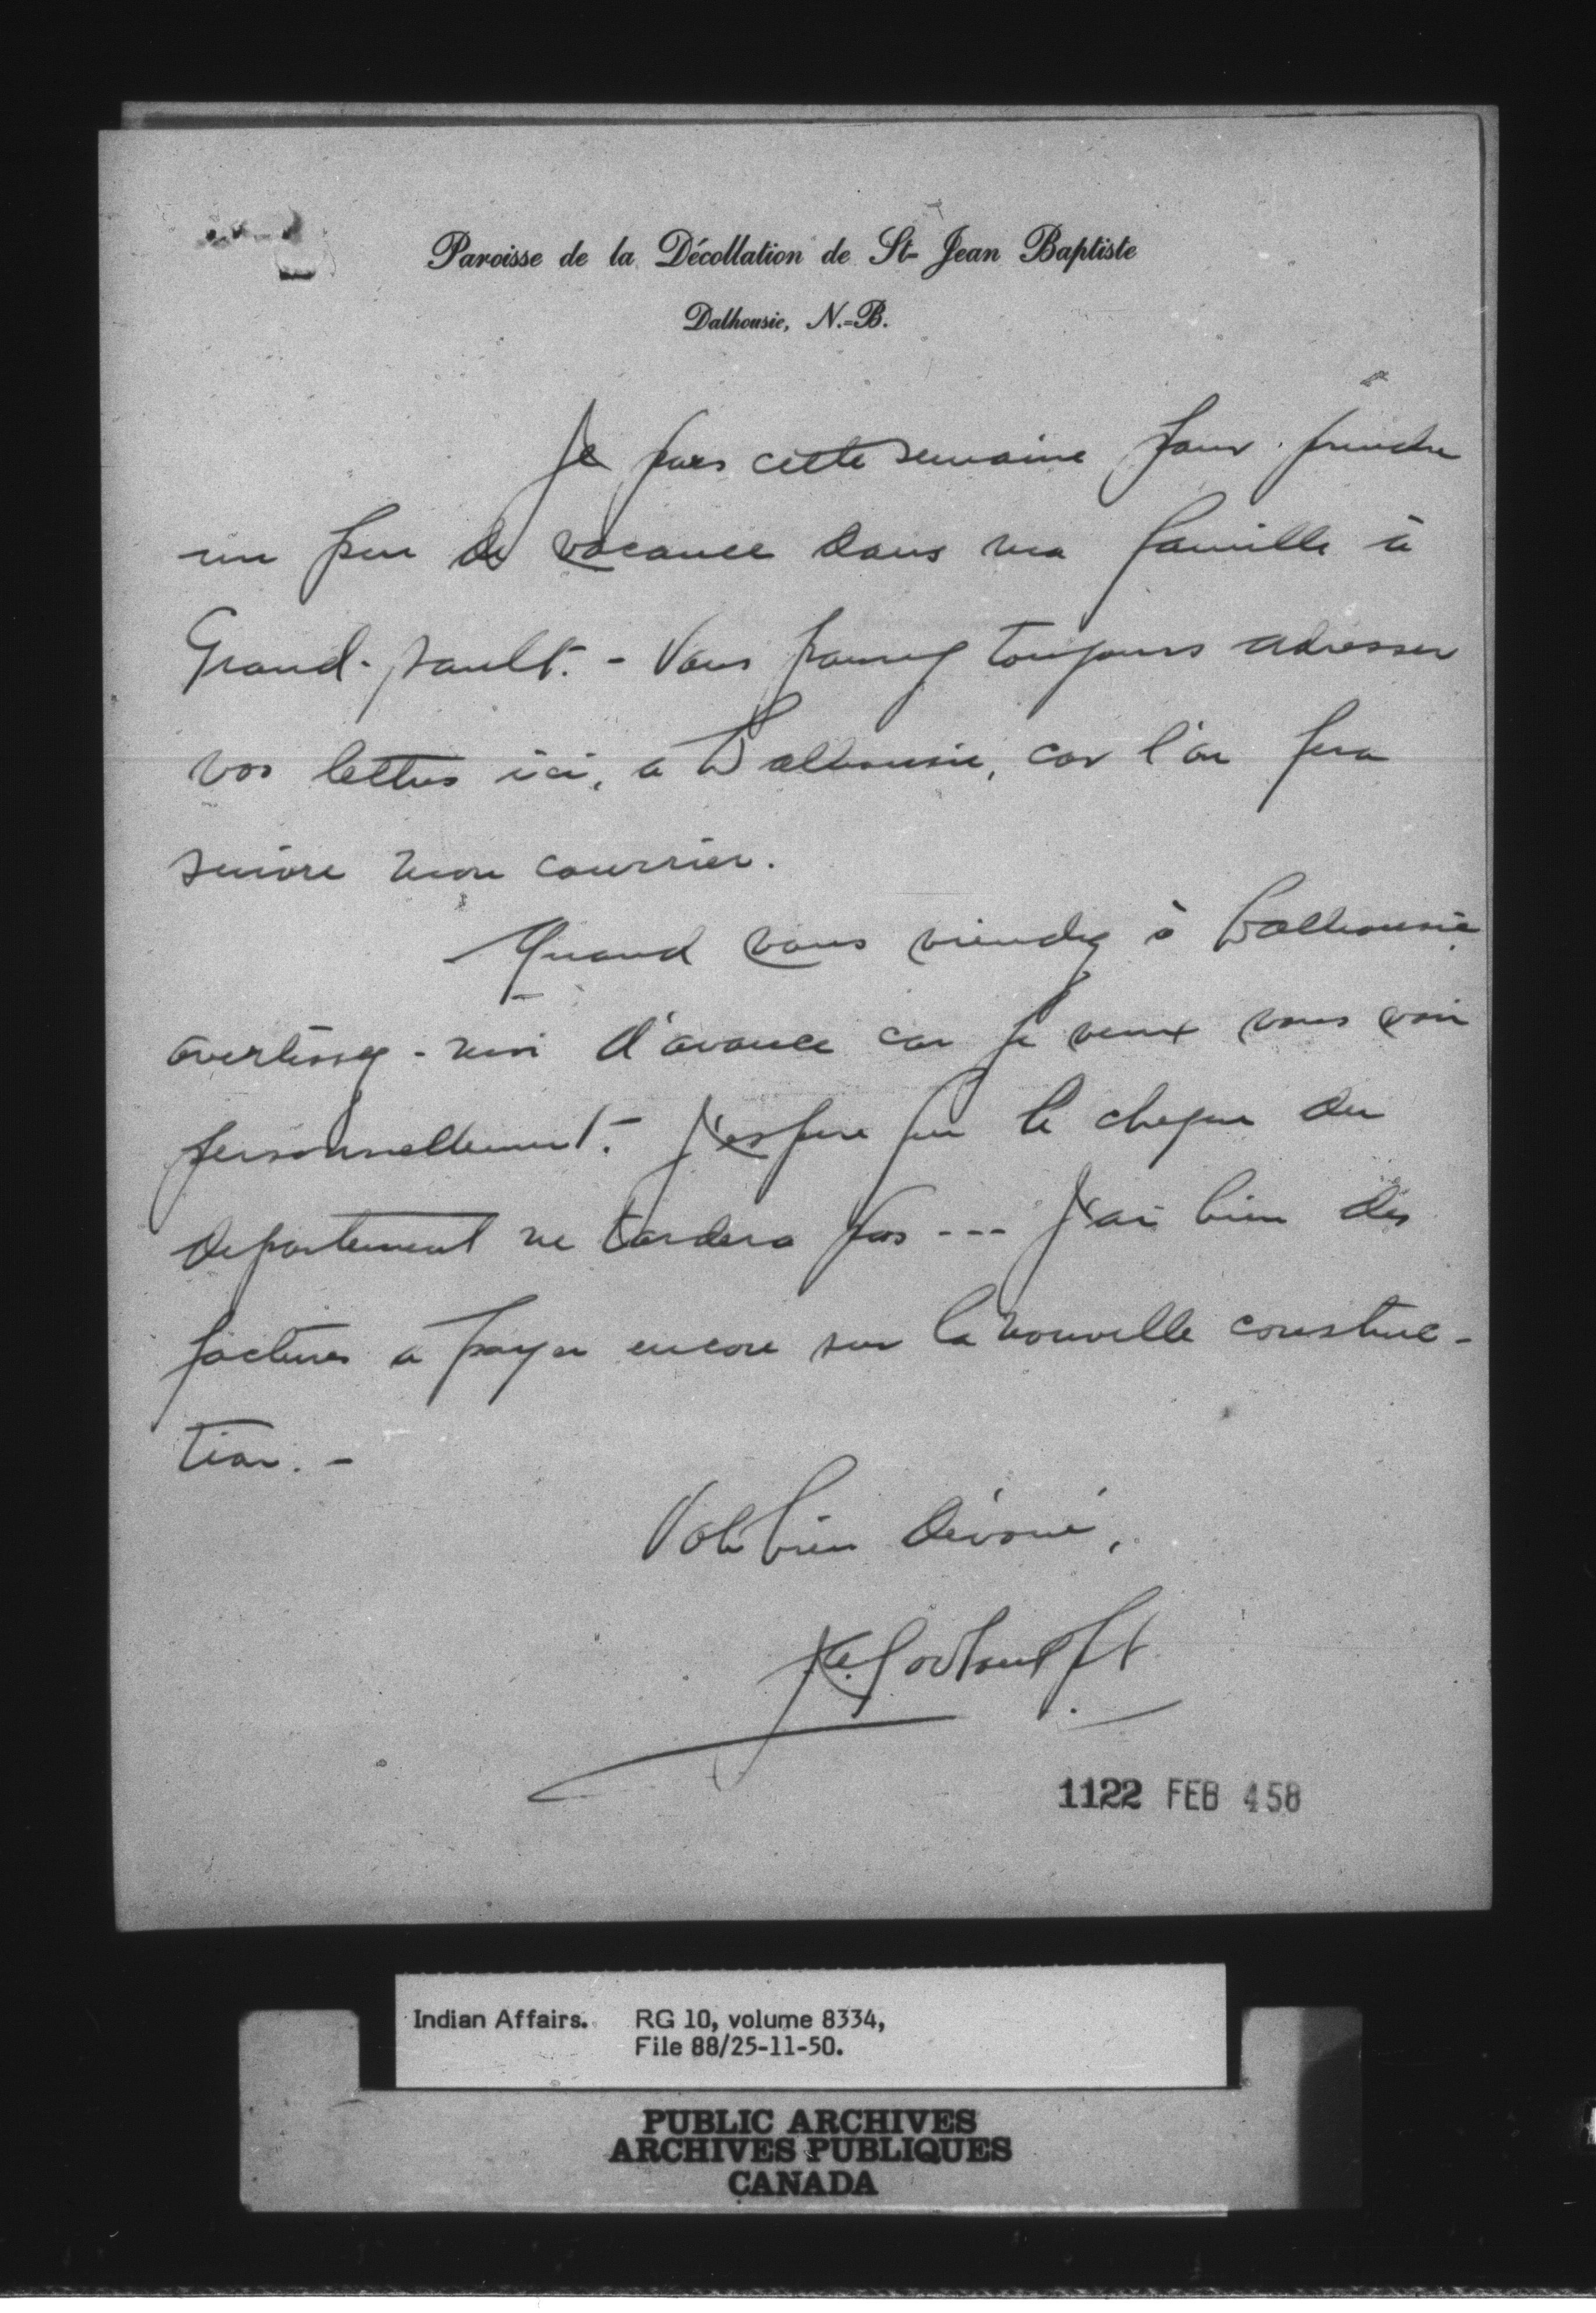 Paroisse de la Décollation de St-Jean Baptiste
Dalhousie, N.-B.
Je pars cette semaine pour prendre
un peu de vacance dans ma famille à
Grand-Sault. - Vous pourrez toujours adresser
vos lettres ici, a Dalhousie, car l'on fera
suivre mon courrier.
Quand vous viendrez à Dalhousie
avertissez-moi d'avance car je veux vous voir
personnellement. J'espere que le cheque du
departement ne tardera pas --- J'ai bien des
factures a payer encore sur la nouvelle construc-
tion. -
Votre bien dévoué,
1122 FEB 4 58
Indian Affairs. RG 10, volume 8334,
File 88/25-11-50.
PUBLIC ARCHIVES
ARCHIVES PUBLIQUES
CANADA